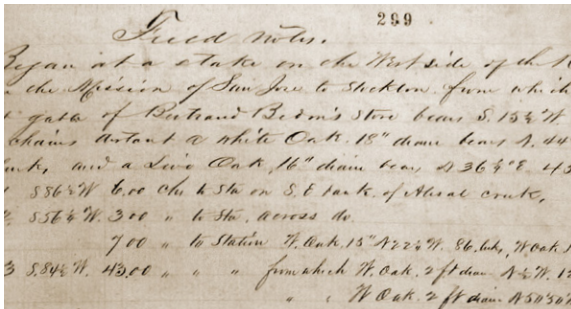 299
Field notes.
Began at a stake on the West side of the
the Mission of San Jose to Stockton. from which
gable of Bertrand Store bears S. 15½ W
chains distant a White Oak. 18" diam bears N. 44
and a Live Oak, 16" diam bears N 36½° E. 45
S 86½ W 6.00 chs to Sta on S. E bank of Alisal creek,
S 56½ W. 3.00 " to Sta. across do.
7.00 " to Station W. Oak. 15" N 22½ W. 86. lnks, W. Oak
3 S. 84½ W. 43.00 " " " from which W. Oak. 2 ft diam N ½ W. 12
" " W Oak. 2 ft diam N 50°50' W